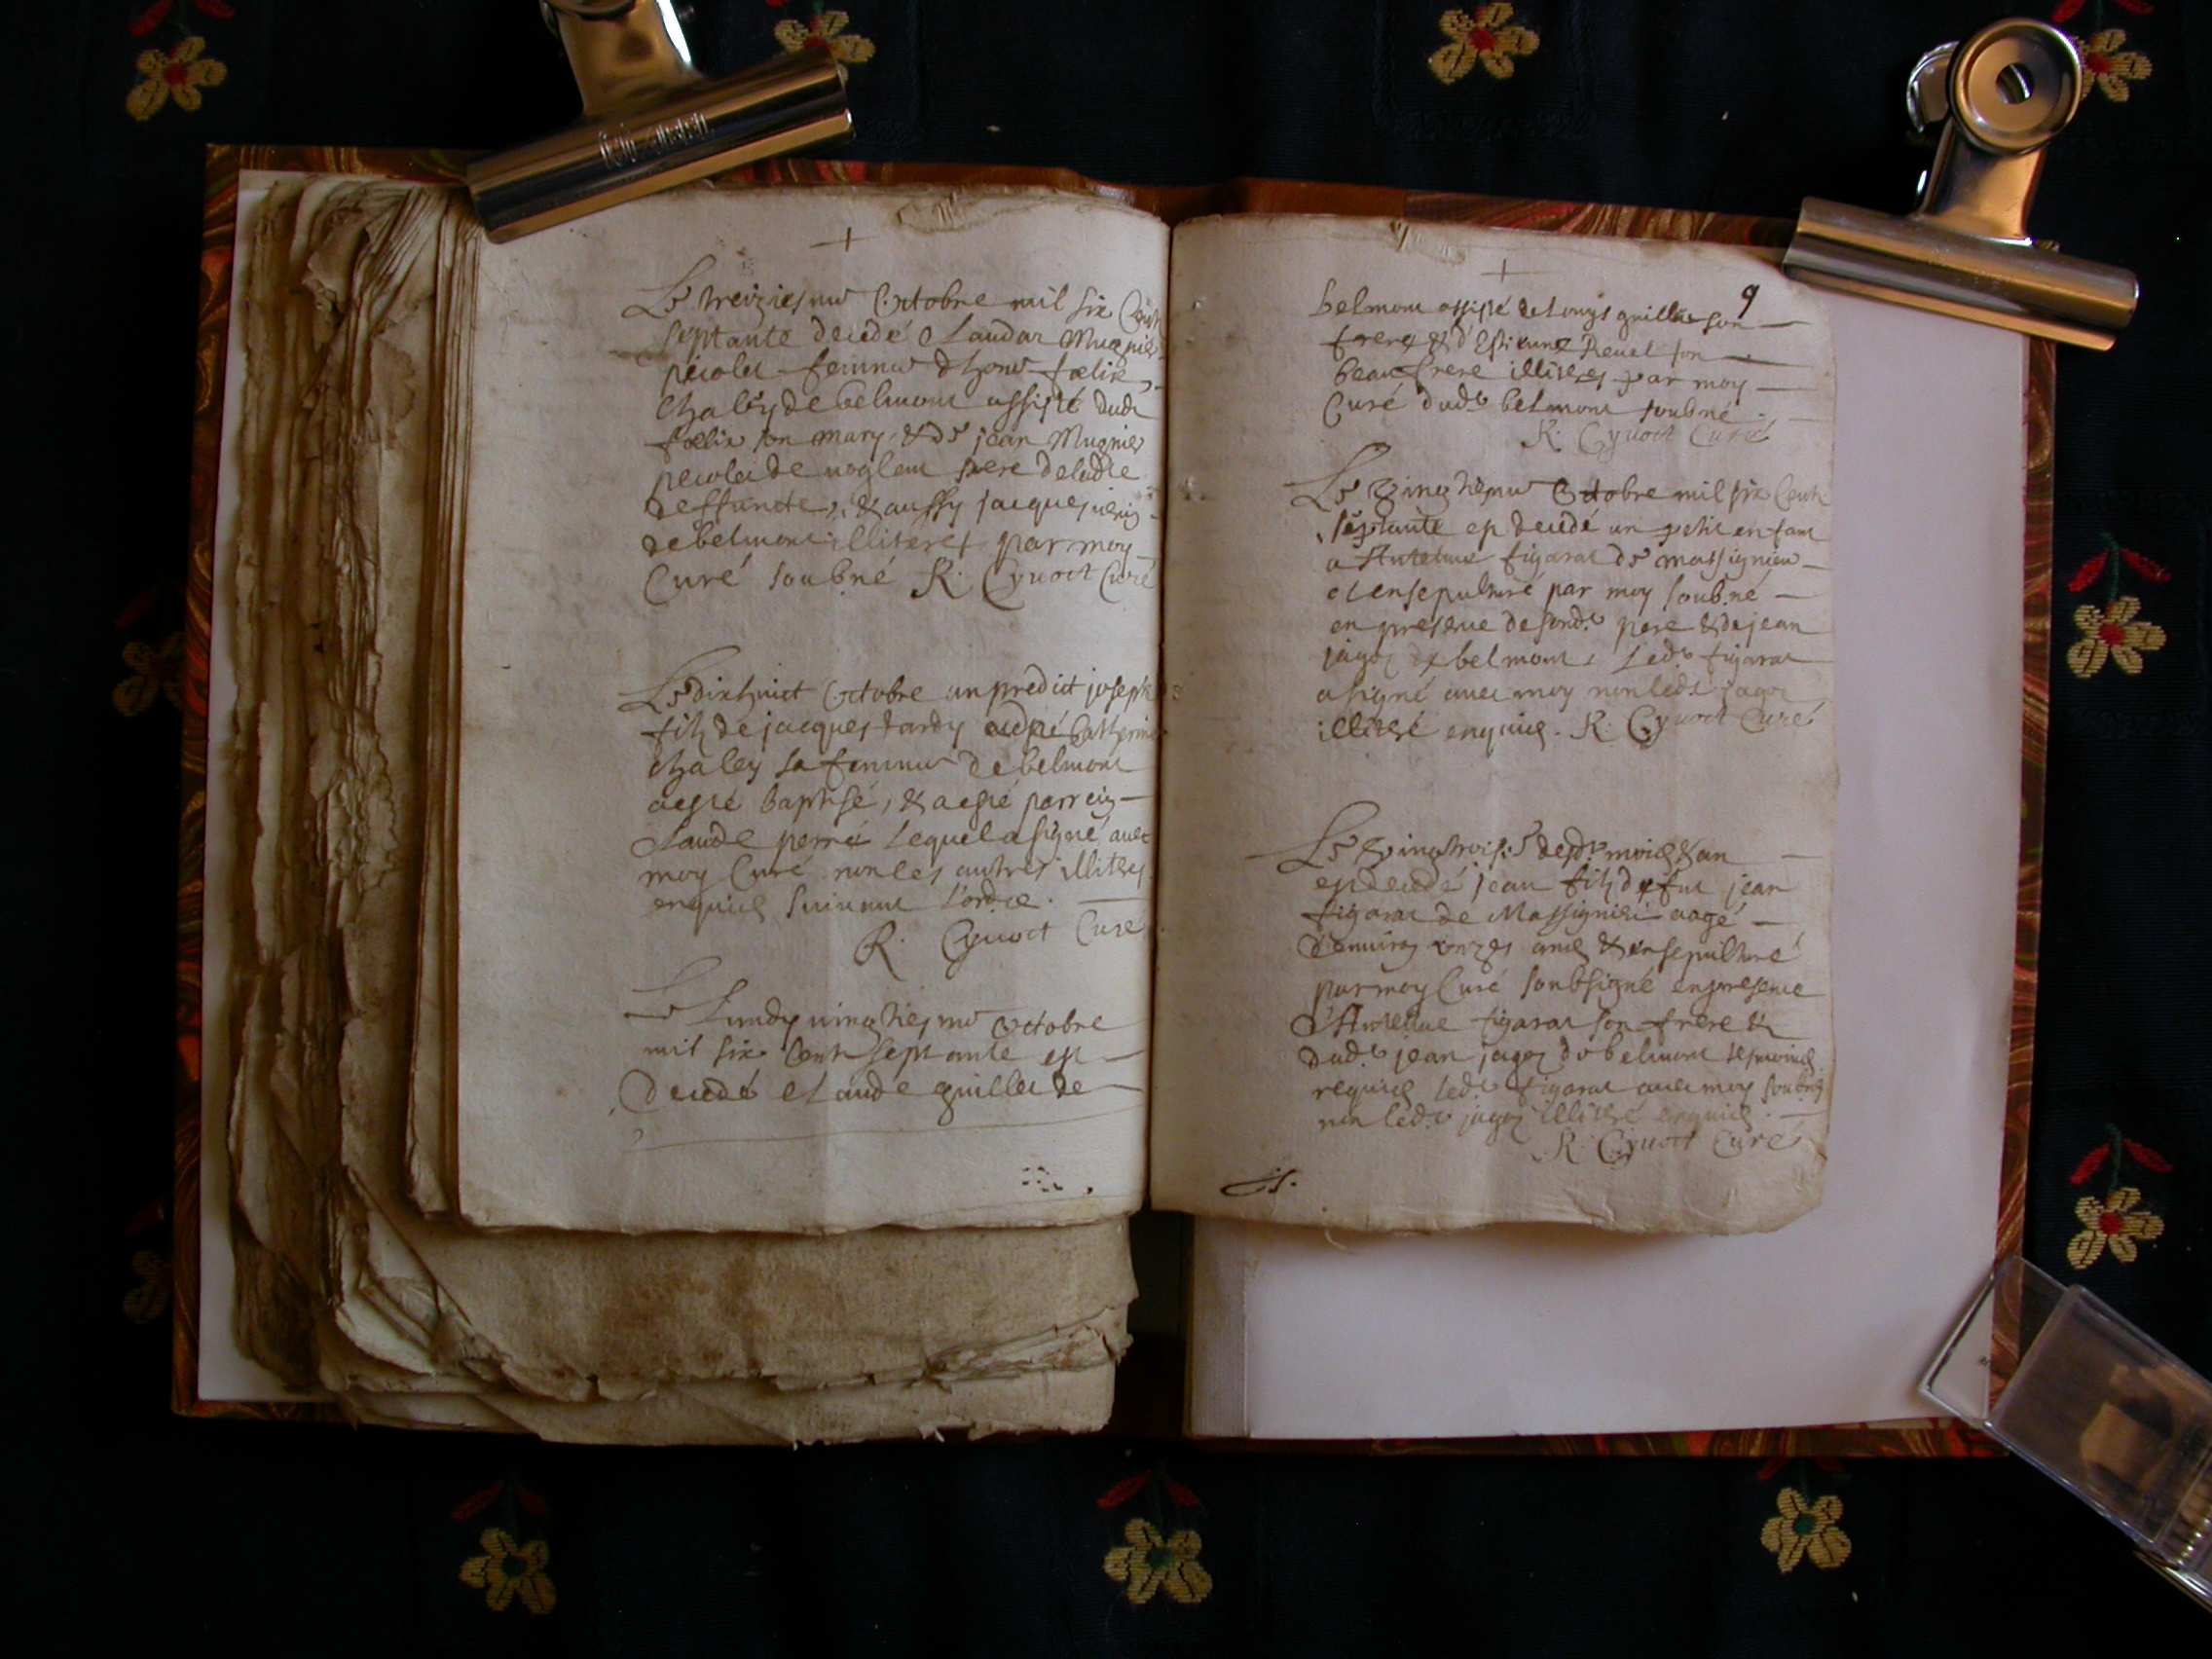 Le treiziesme Octobre mil six Cent
septante decedé Claudaz Mugnier
picolet femme dhon felix
Chaley de belmont assisté dud
felix son mary & de jean Mugnier
picolet de voglent pere deladte
deffuncte, & aussy jacques
debelmont illiteres par moy
Curé soubné R. Cyuoct Curé
Le dixhuict Octobre an predict joseph
filz de jacques tardy
chaley sa femme de belmont
aesté baptisé, & a esté parrein
Claude perret lequel a signé avec
moy Curé non les autres illiteres
enquis suivant l'ordre.
R. Cyuoct Curé
Le Lundy vingtiesme Octobre
mil six Cent septante est
decedé claude guillet de
9
belmont assisté de Louys guillet son
frere & d'Estienne Revel son
beaufrere illiteres par moy
Curé dudt belmont soubné.
R. Cyuoct Curé
Le vingtiesme Octobre mil six Cent
septante est decedé un petit enfant
a Antelme figarat de massignieu
et ensepulturé par moy soubné
en presence de sondt pere & de jean
jagoz de belmont, Ledt figarat
a signé avec moy non ledt jagoz
illiteré enquis. R. Cyuoct Curé
Le vingtrois desdt mois & an
est decedé jean filz de fut jean
figarat de Massignieu aagé
d'environ onzes ans & ensepulturé
par moy Curé soubsigné en presence
d'Antelme figarat son frere &
dudt jean jagoz de belmont tesmoins
requis ledt figarat avec moy soubné
non ledt jagoz illiteré enquis.
R. Cyuoct Curé